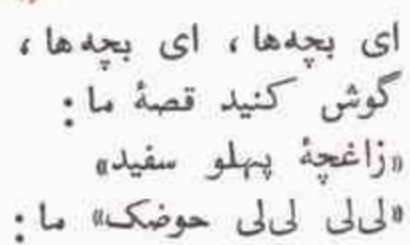 ای بچه‌ها، ای بچه‌ها،
گوش کنید قصهٔ ما:
«زاغچهٔ پهلو سفید»
«لی‌لی لی‌لی حوضک» ما: